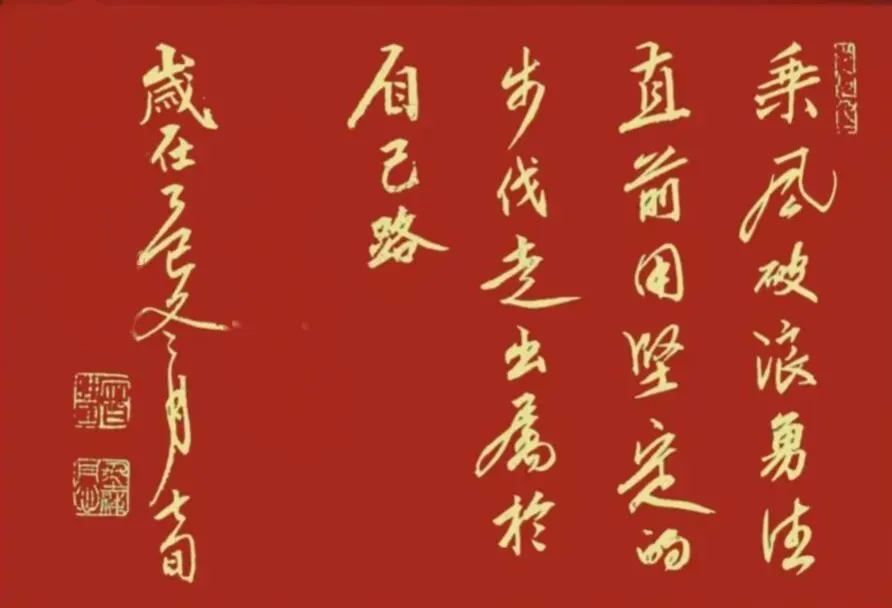 乘风破浪勇往
直前用坚定的
步伐走出属於
自己路
歲在乙巳冬月上旬